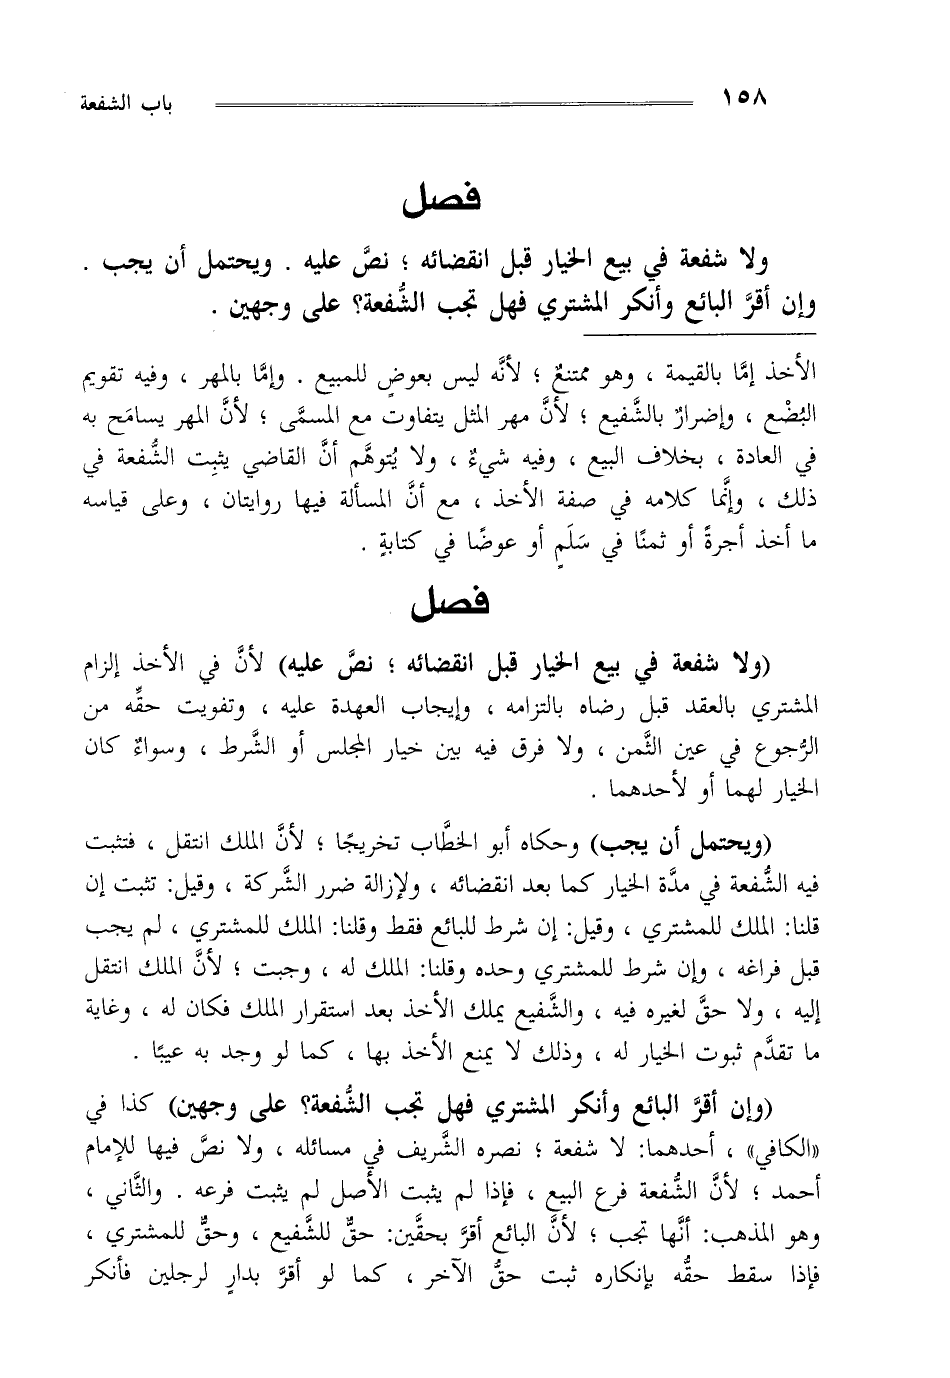 ١٥٨ باب الشفعة
فصل
ولا شفعة في بيع الخيار قبل انقضائه ؛ نصَّ عليه . ويحتمل أن يجب .
وإن أقرَّ البائع وأنكر المشتري فهل تجب الشُّفعة؟ على وجهين .
الأخذ إمَّا بالقيمة ، وهو ممتنعٌ ؛ لأنَّه ليس بعوضٍ للمبيع . وإمَّا بالمهر ، وفيه تقويم
البُضْع ، وإضرارٌ بالشَّفيع ؛ لأنَّ مهر المثل يتفاوت مع المسمَّى ؛ لأنَّ المهر يسامَح به
في العادة ، بخلاف البيع ، وفيه شيءٌ ، ولا يُتوهَّم أنَّ القاضي يثبِت الشُّفعة في
ذلك ، وإنَّما كلامه في صفة الأخذ ، مع أنَّ المسألة فيها روايتان ، وعلى قياسه
ما أخذ أجرةً أو ثمنًا في سَلَمٍ أو عوضًا في كتابةٍ .
فصل
(ولا شفعة في بيع الخيار قبل انقضائه ؛ نصَّ عليه) لأنَّ في الأخذ إلزام
المشتري بالعقد قبل رضاه بالتزامه ، وإيجاب العهدة عليه ، وتفويت حقِّه من
الرُّجوع في عين الثَّمن ، ولا فرق فيه بين خيار المجلس أو الشَّرط ، وسواءٌ كان
الخيار لهما أو لأحدهما .
(ويحتمل أن يجب) وحكاه أبو الخطَّاب تخريجًا ؛ لأنَّ الملك انتقل ، فتثبت
فيه الشُّفعة في مدَّة الخيار كما بعد انقضائه ، ولإزالة ضرر الشَّركة ، وقيل: تثبت إن
قلنا: الملك للمشتري ، وقيل: إن شرط للبائع فقط وقلنا: الملك للمشتري ، لم يجب
قبل فراغه ، وإن شرط للمشتري وحده وقلنا: الملك له ، وجبت ؛ لأنَّ الملك انتقل
إليه ، ولا حقَّ لغيره فيه ، والشَّفيع يملك الأخذ بعد استقرار الملك فكان له ، وغاية
ما تقدَّم ثبوت الخيار له ، وذلك لا يمنع الأخذ بها ، كما لو وجد به عيبًا .
(وإن أقرَّ البائع وأنكر المشتري فهل تجب الشُّفعة؟ على وجهين) كذا في
«الكافي» ، أحدهما: لا شفعة ؛ نصره الشَّريف في مسائله ، ولا نصَّ فيها للإمام
أحمد ؛ لأنَّ الشُّفعة فرع البيع ، فإذا لم يثبت الأصل لم يثبت فرعه . والثَّاني ،
وهو المذهب: أنَّها تجب ؛ لأنَّ البائع أقرَّ بحقَّين: حقٌّ للشَّفيع ، وحقٌّ للمشتري ،
فإذا سقط حقُّه بإنكاره ثبت حقُّ الآخر ، كما لو أقرَّ بدارٍ لرجلين فأنكر